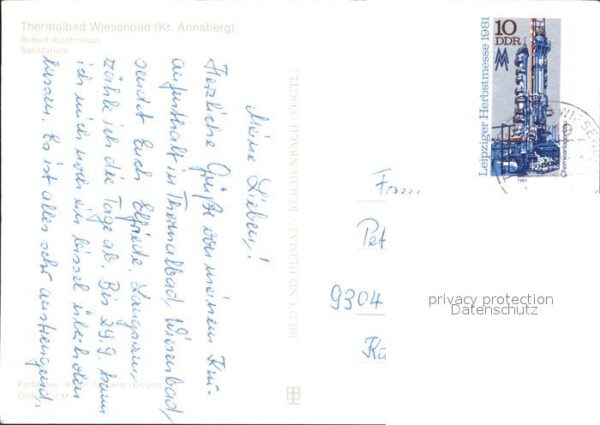 Thermalbad Wiesenbad (Kr. Annaberg)
Robert Koch Haus
Sanatorium
Meine Lieben!
Herzliche Grüße von meinem Kur-
aufenthalt in Thermalbad Wiesenbad,
sendet Euch Elfriede. Langsam
zähle ich die Tage ab. Bis 29.9. kann
ich mich noch ein bissel überholen
lassen. Es ist alles sehr anstrengend.
BILD UND HEIMAT REICHENBACH
DDR
Leipziger Herbstmesse 1981
10
DDR
MM
1981
WIESENBAD
Fam
Pet
9304
Kä
privacy protection
Datenschutz